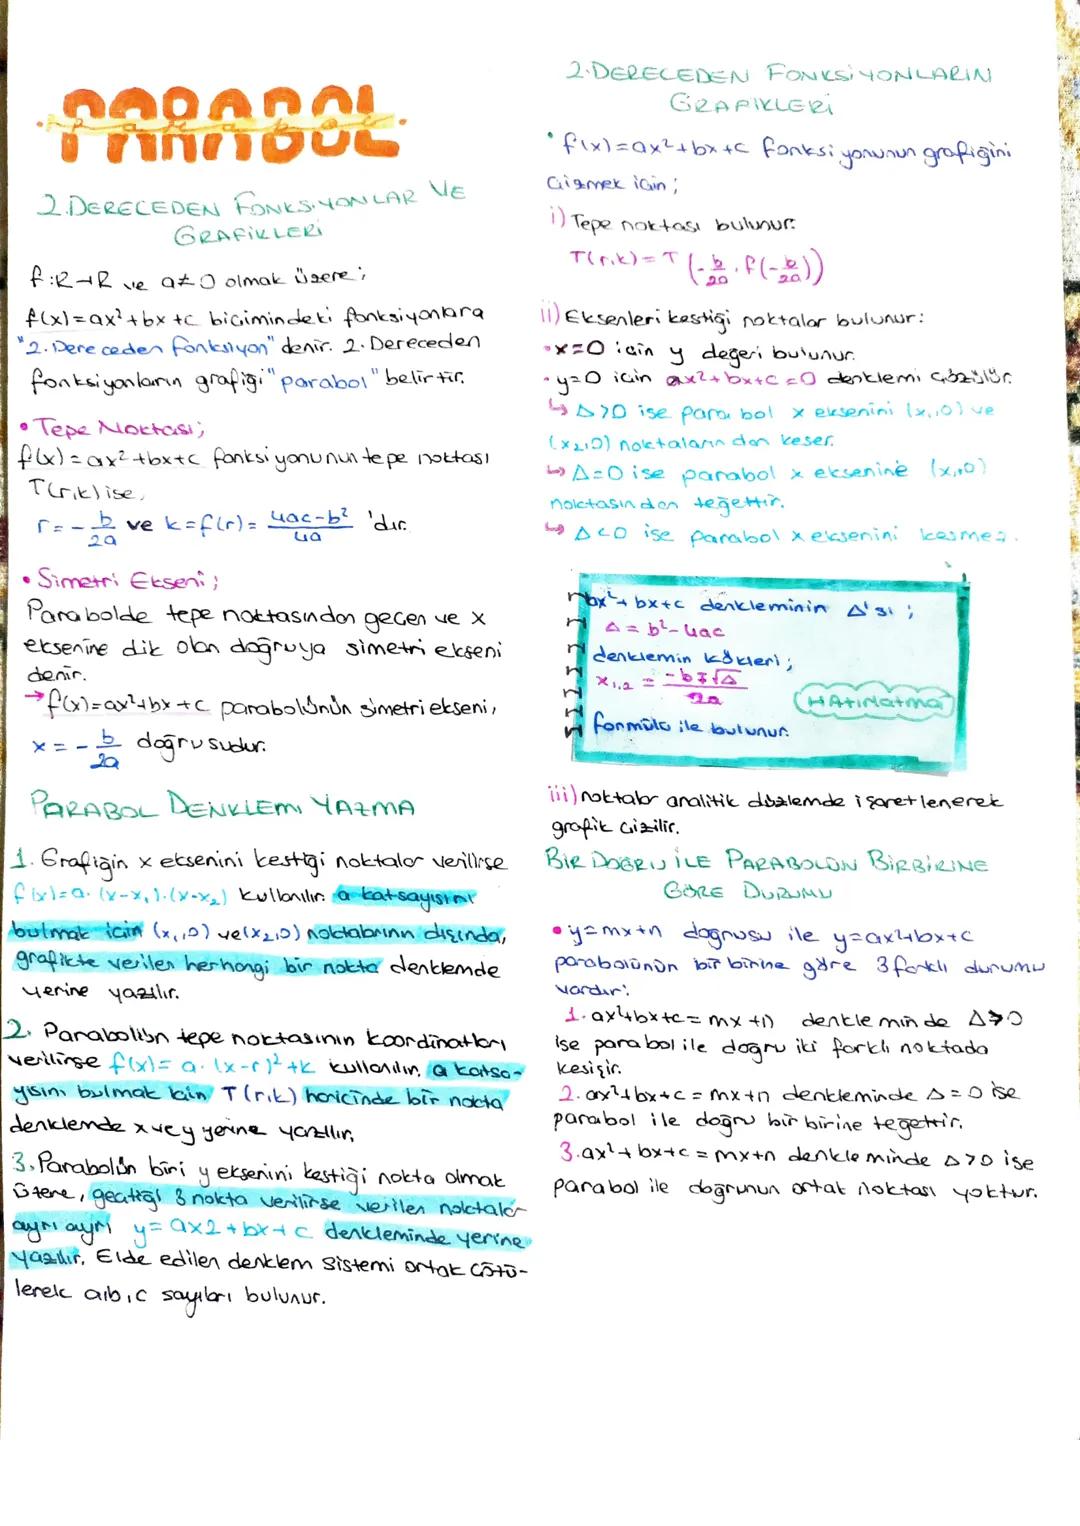 PARABOL
parabol
2.DERECEDEN FONKSİYONLAR VE
GRAFİKLERİ
f:R→R ve a≠0 olmak üzere;
f(x)=ax²+bx+c biçimindeki fonksiyonlara
"2. Dereceden fonksiyon" denir. 2. Dereceden
fonksiyonların grafiği "parabol" belirtir.
• Tepe Noktası;
f(x)=ax²+bx+c fonksiyonunun tepe noktası
T(r,k) ise,
r=-b/2a ve k=f(r)= 4ac-b²/4a 'dır.
• Simetri Ekseni;
Parabolde tepe noktasından geçen ve x
eksenine dik olan doğruya simetri ekseni
denir.
→f(x)=ax²+bx+c parabolünün simetri ekseni,
x = -b/2a doğrusudur.
PARABOL DENKLEMİ YAZMA
1. Grafiğin x eksenini kestiği noktalar verilirse
f(x)=a.(x-x₁).(x-x₂) kullanılır. a katsayısını
bulmak için (x₁,0) ve (x₂,0) noktalarının dışında,
grafikte verilen herhangi bir nokta denklemde
yerine yazılır.
2. Parabolün tepe noktasının koordinatları
verilirse f(x)= a.(x-r)²+k kullanılır. a katsa-
yısını bulmak için T(r,k) haricinde bir nokta
denklemde x ve y yerine yazılır.
3. Parabolün biri y eksenini kestiği nokta olmak
üzere, geçtiği 3 nokta verilirse verilen noktalar
ayrı ayrı y=ax2+bx+c denkleminde yerine
yazılır. Elde edilen denklem sistemi ortak çözü-
lerek a,b,c sayıları bulunur.
2.DERECEDEN FONKSİYONLARIN
GRAFİKLERİ
• f(x)=ax²+bx+c fonksiyonunun grafiğini
çizmek için;
i) Tepe noktası bulunur.
T(r,k)=T(-b/2a, f(-b/2a))
ii) Eksenleri kestiği noktalar bulunur:
•x=0 için y değeri bulunur.
•y=0 için ax²+bx+c=0 denklemi çözülür.
↳ Δ>0 ise parabol x eksenini (x₁,0) ve
(x₂,0) noktalarından keser.
↳ Δ=0 ise parabol x eksenine (x₁,0)
noktasından teğettir.
↳ Δ<0 ise parabol x eksenini kesmez.
ax²+bx+c denkleminin Δ'sı;
Δ=b²-4ac
denklemin kökleri;
x₁,₂ = -b∓√Δ/2a
HATIRLATMA
formülü ile bulunur.
iii) noktalar analitik düzlemde işaretlenerek
grafik çizilir.
BİR DOĞRU İLE PARABOLÜN BİRBİRİNE
GÖRE DURUMU
• y=mx+n doğrusu ile y=ax²+bx+c
parabolünün birbirine göre 3 farklı durumu
vardır:
1. ax²+bx+c=mx+n denkleminde Δ>0
ise parabol ile doğru iki farklı noktada
kesişir.
2. ax²+bx+c=mx+n denkleminde Δ=0 ise
parabol ile doğru birbirine teğettir.
3. ax²+bx+c=mx+n denkleminde Δ>0 ise
parabol ile doğrunun ortak noktası yoktur.